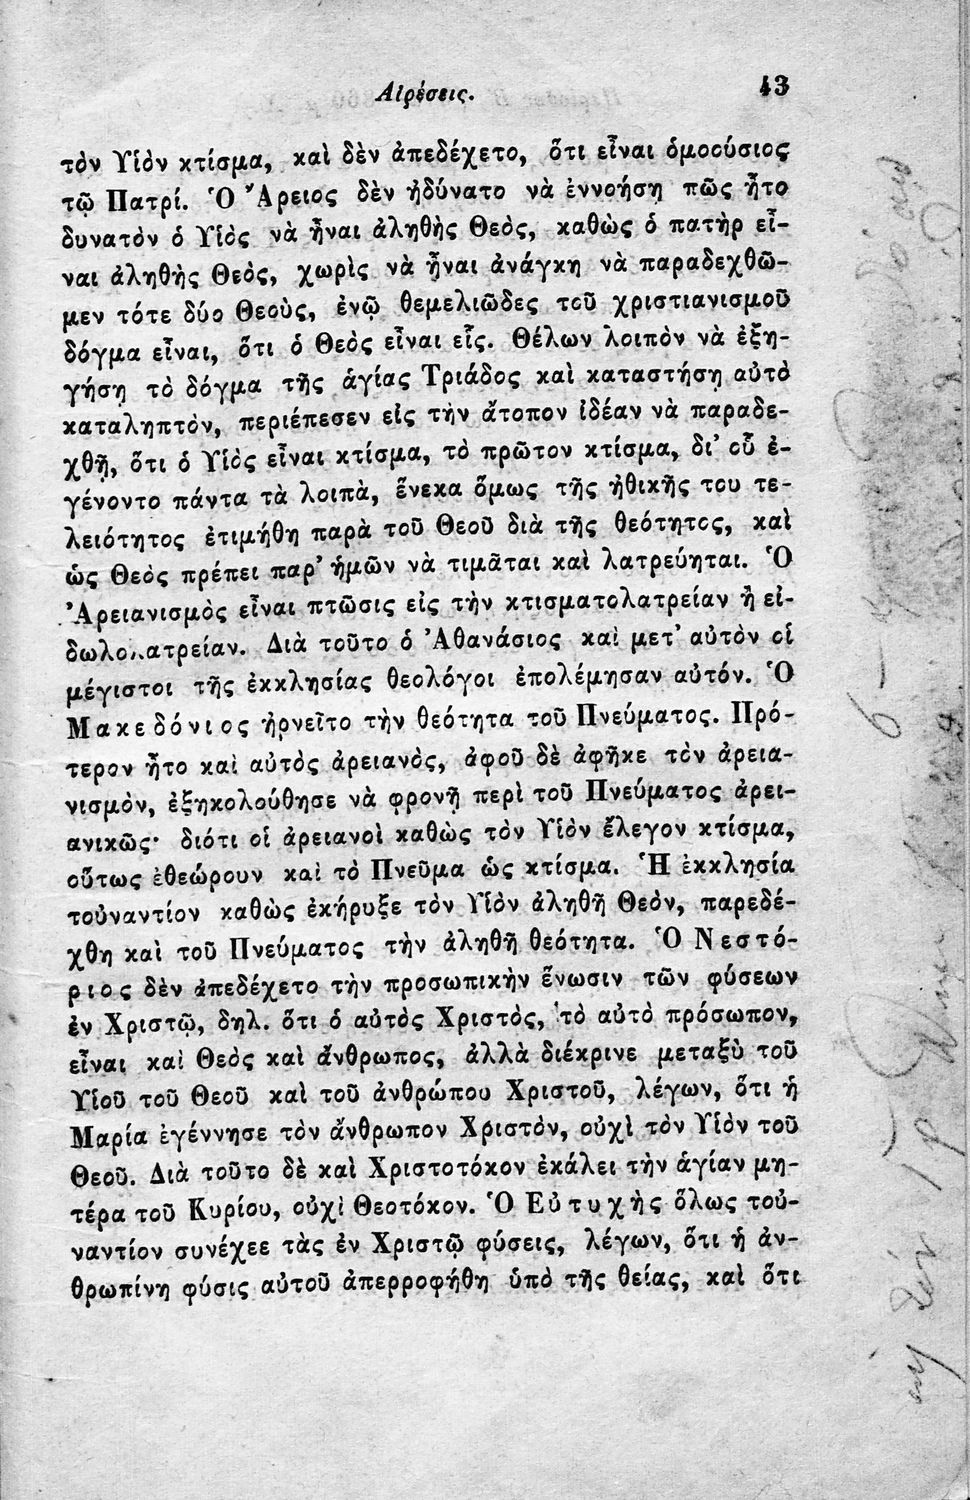 Αἱρέσεις.
43
τὸν Υἱὸν κτίσμα, καὶ δὲν ἀπεδέχετο, ὅτι εἶναι ὁμοούσιος
τῷ Πατρί. Ὁ Ἄρειος δὲν ἠδύνατο νὰ ἐννοήσῃ πῶς ἦτο
δυνατὸν ὁ Υἱὸς νὰ ἦναι ἀληθὴς Θεὸς, καθὼς ὁ πατὴρ εἶ-
ναι ἀληθὴς Θεὸς, χωρὶς νὰ ἦναι ἀνάγκη νὰ παραδεχθῶ-
μεν τότε δύο Θεοὺς, ἐνῷ θεμελιῶδες τοῦ χριστιανισμοῦ
δόγμα εἶναι, ὅτι ὁ Θεὸς εἶναι εἷς. Θέλων λοιπὸν νὰ ἐξη-
γήσῃ τὸ δόγμα τῆς ἁγίας Τριάδος καὶ καταστήσῃ αὐτὸ
καταληπτὸν, περιέπεσεν εἰς τὴν ἄτοπον ἰδέαν νὰ παραδε-
χθῇ, ὅτι ὁ Υἱὸς εἶναι κτίσμα, τὸ πρῶτον κτίσμα, δι' οὗ ἐ-
γένοντο πάντα τὰ λοιπὰ, ἕνεκα ὅμως τῆς ἠθικῆς του τε-
λειότητος ἐτιμήθη παρὰ τοῦ Θεοῦ διὰ τῆς θεότητος, καὶ
ὡς Θεὸς πρέπει παρ' ἡμῶν νὰ τιμᾶται καὶ λατρεύηται. Ὁ
Ἀρειανισμὸς εἶναι πτῶσις εἰς τὴν κτισματολατρείαν ἢ εἰ-
δωλολατρείαν. Διὰ τοῦτο ὁ Ἀθανάσιος καὶ μετ' αὐτὸν οἱ
μέγιστοι τῆς ἐκκλησίας θεολόγοι ἐπολέμησαν αὐτόν. Ὁ
Μακεδόνιος ἠρνεῖτο τὴν θεότητα τοῦ Πνεύματος. Πρό-
τερον ἦτο καὶ αὐτὸς ἀρειανὸς, ἀφοῦ δὲ ἀφῆκε τὸν ἀρεια-
νισμὸν, ἐξηκολούθησε νὰ φρονῇ περὶ τοῦ Πνεύματος ἀρει-
ανικῶς· διότι οἱ ἀρειανοὶ καθὼς τὸν Υἱὸν ἔλεγον κτίσμα,
οὕτως ἐθεώρουν καὶ τὸ Πνεῦμα ὡς κτίσμα. Ἡ ἐκκλησία
τοὐναντίον καθὼς ἐκήρυξε τὸν Υἱὸν ἀληθῆ Θεὸν, παρεδέ-
χθη καὶ τοῦ Πνεύματος τὴν ἀληθῆ θεότητα. Ὁ Νεστό-
ριος δὲν ἀπεδέχετο τὴν προσωπικὴν ἕνωσιν τῶν φύσεων
ἐν Χριστῷ, δηλ. ὅτι ὁ αὐτὸς Χριστὸς, τὸ αὐτὸ πρόσωπον,
εἶναι καὶ Θεὸς καὶ ἄνθρωπος, ἀλλὰ διέκρινε μεταξὺ τοῦ
Υἱοῦ τοῦ Θεοῦ καὶ τοῦ ἀνθρώπου Χριστοῦ, λέγων, ὅτι ἡ
Μαρία ἐγέννησε τὸν ἄνθρωπον Χριστὸν, οὐχὶ τὸν Υἱὸν τοῦ
Θεοῦ. Διὰ τοῦτο δὲ καὶ Χριστοτόκον ἐκάλει τὴν ἁγίαν μη-
τέρα τοῦ Κυρίου, οὐχὶ Θεοτόκον. Ὁ Εὐτυχὴς ὅλως τοὐ-
ναντίον συνέχεε τὰς ἐν Χριστῷ φύσεις, λέγων, ὅτι ἡ ἀν-
θρωπίνη φύσις αὐτοῦ ἀπερροφήθη ὑπὸ τῆς θείας, καὶ ὅτι